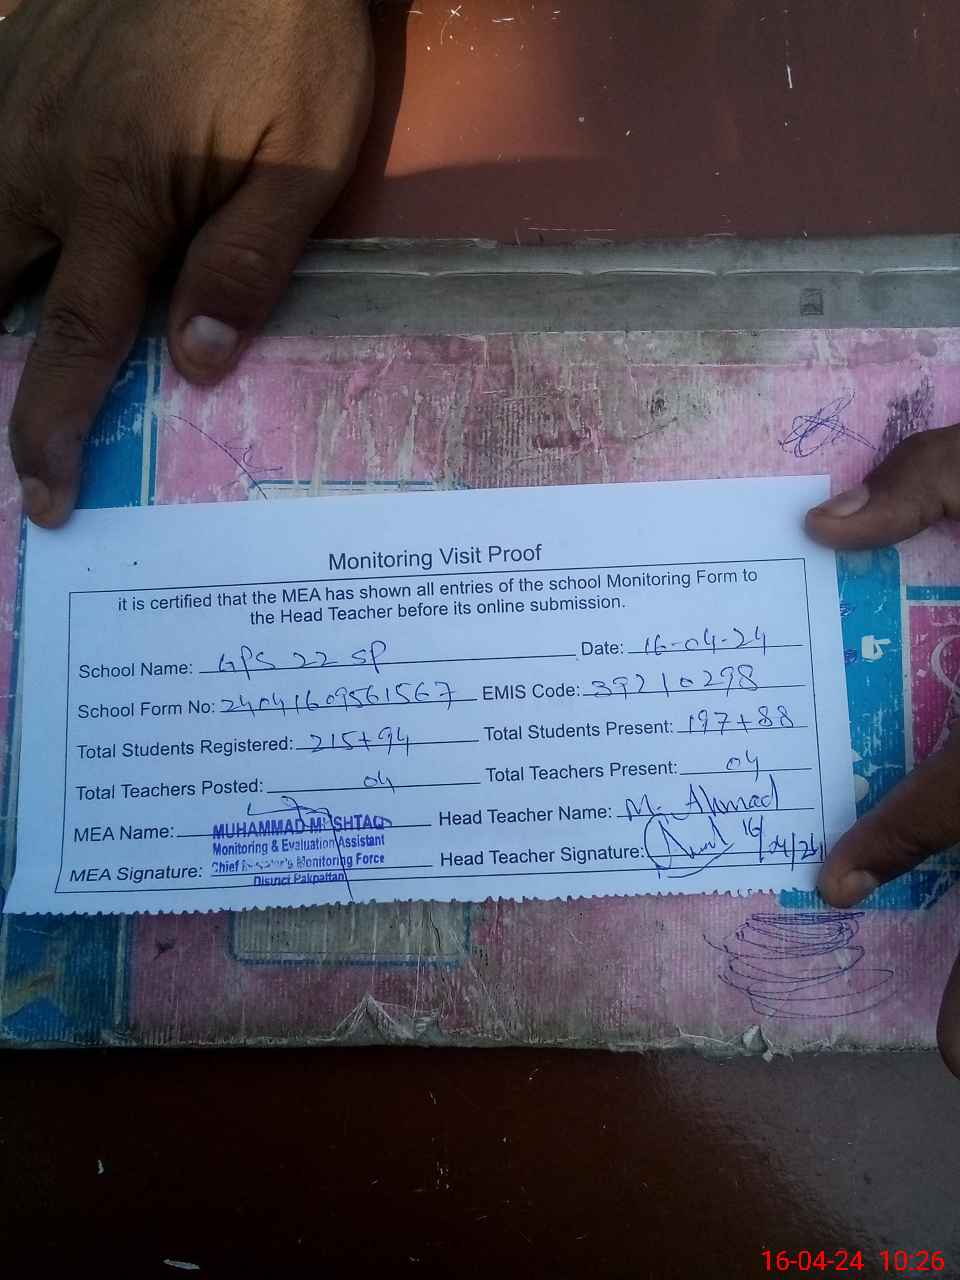 Monitoring Visit Proof
it is certified that the MEA has shown all entries of the school Monitoring Form to
the Head Teacher before its online submission.
School Name: GPS 22 SP Date: 16-04-24
School Form No: 24041609561567 EMIS Code: 39210298
Total Students Registered: 215+94 Total Students Present: 197+88
Total Teachers Posted: 04 Total Teachers Present: 04
MEA Name: MUHAMMAD MUSHTAQ Head Teacher Name: M. Ahmad
Monitoring & Evaluation Assistant
MEA Signature: Chief Monitoring Force Head Teacher Signature: 16/04/24
District Pakpattan
16-04-24 10:26